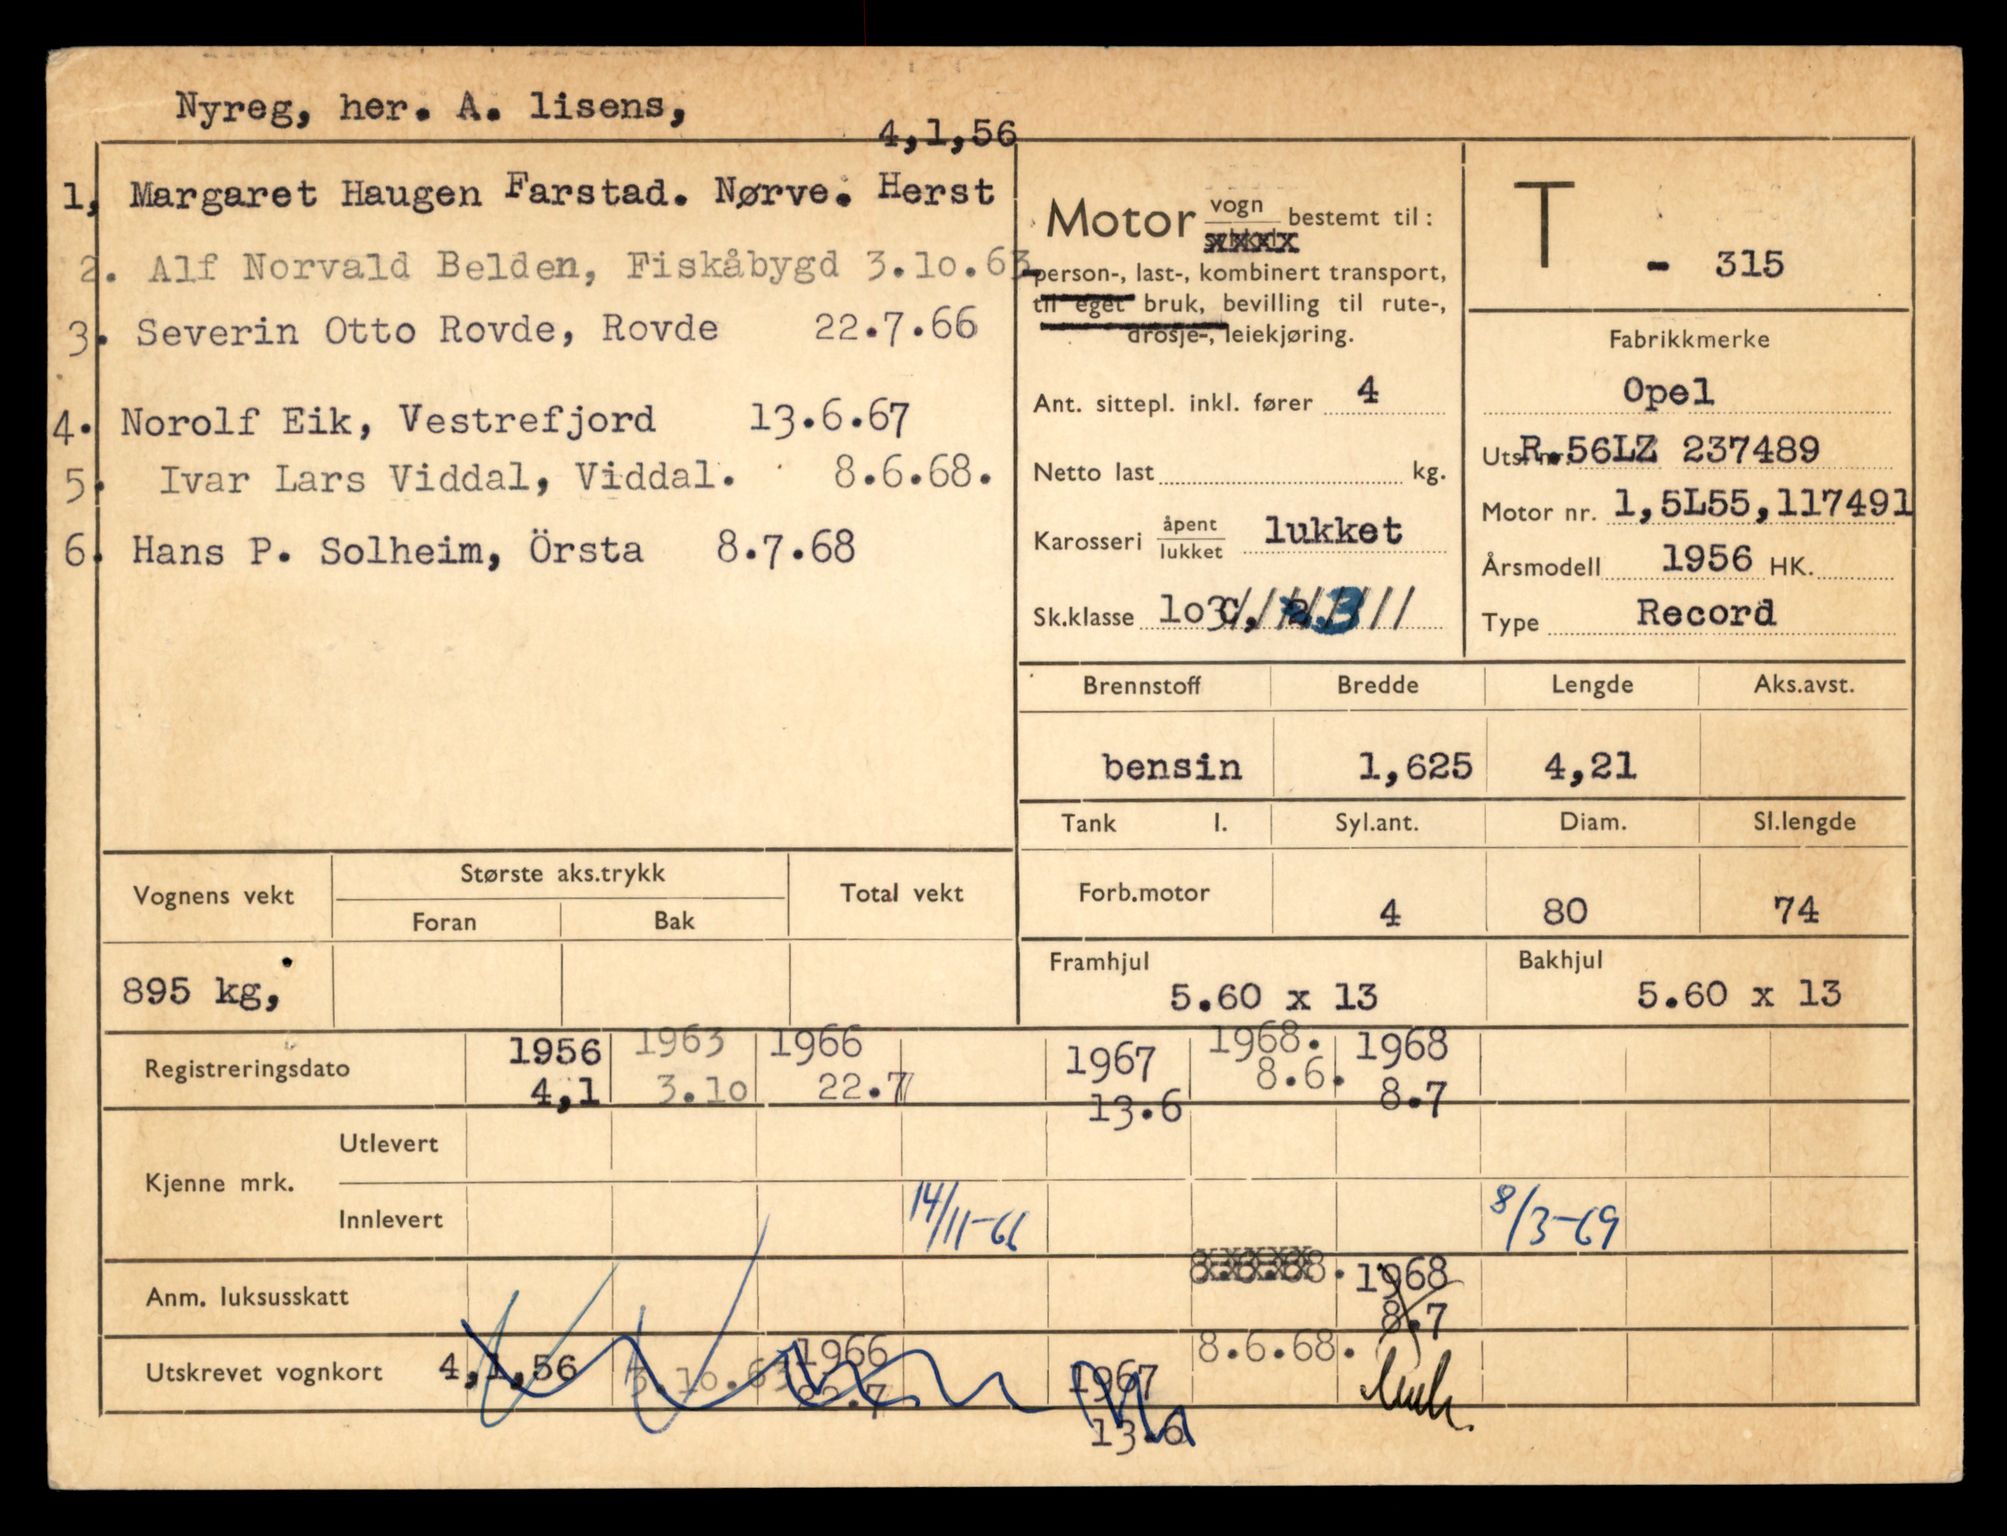 Nyreg, her. A. lisens,
4,1,56
1, Margaret Haugen Farstad. Nørve. Herst
2. Alf Norvald Belden, Fiskåbygd 3.10.63
3. Severin Otto Rovde, Rovde 22.7.66
4. Norolf Eik, Vestrefjord 13.6.67
5. Ivar Lars Viddal, Viddal. 8.6.68.
6. Hans P. Solheim, Örsta 8.7.68
Motor vogn bestemt til:
person-, last-, kombinert transport,
til eget bruk, bevilling til rute-,
drosje-, leiekjøring.
Ant. sittepl. inkl. fører 4
Netto last kg.
Karosseri åpent lukket lukket
Sk.klasse
T - 315
Fabrikkmerke
Opel
R.56LZ 237489
Motor nr. 1,5L55,117491
Årsmodell 1956 HK.
Type Record
Brennstoff Bredde Lengde Aks.avst.
bensin 1,625 4,21
Tank l. Syl.ant. Diam. Sl.lengde
Forb.motor 4 80 74
Framhjul Bakhjul
5.60 x 13 5.60 x 13
Vognens vekt Største aks.trykk Total vekt
Foran Bak
895 kg,
Registreringsdato 1956 1963 1966 1967 1968. 1968
4,1 3.10 22.7 13.6 8.6. 8.7
Kjenne mrk.
Utlevert
Innlevert 14/11-66 8/3-69
Anm. luksusskatt 8.6.68. 1968
8.7
Utskrevet vognkort 4,1,56 3.10.63 1966 1967 8.6.68.
22.7 13.6